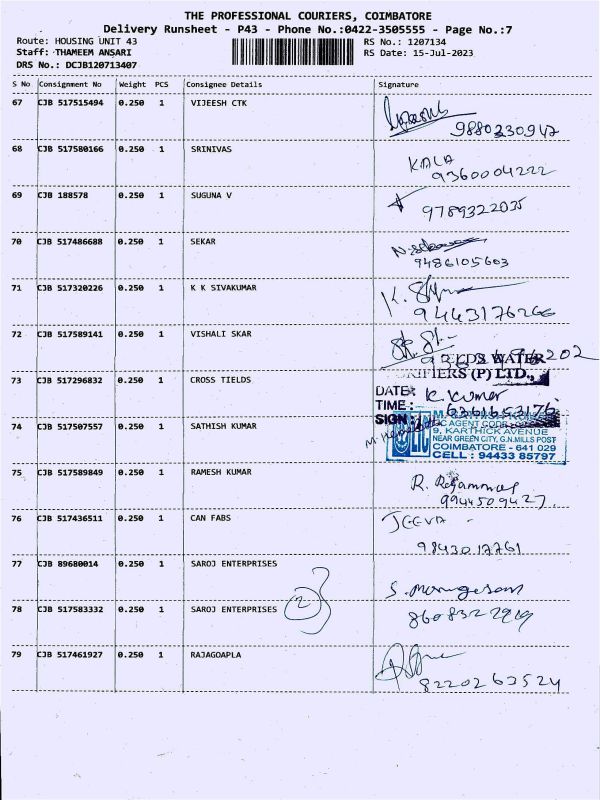 THE PROFESSIONAL COURIERS, COIMBATORE
Delivery Runsheet - P43 - Phone No.:0422-3505555 - Page No.:7
Route: HOUSING UNIT 43 RS No.: 1207134
Staff: THAMEEM ANSARI RS Date: 15-Jul-2023
DRS No.: DCJB120713407
S No Consignment No Weight PCS Consignee Details Signature
67 CJB 517515494 0.250 1 VIJEESH CTK
9880230947
68 CJB 517580166 0.250 1 SRINIVAS KALA
9360004222
69 CJB 188578 0.250 1 SUGUNA V
9789322035
70 CJB 517486688 0.250 1 SEKAR
9486105603
71 CJB 517320226 0.250 1 K K SIVAKUMAR
9443176266
72 CJB 517589141 0.250 1 VISHALI SKAR
202
WATER
(P) LTD.,
73 CJB 517296832 0.250 1 CROSS TIELDS
DATE: K. Kumar
TIME:
SIGN:
74 CJB 517507557 0.250 1 SATHISH KUMAR
LIC AGENT CODE
9, KARTHICK AVENUE
NEAR GREEN CITY, G.N.MILLS POST
COIMBATORE - 641 029
CELL : 94433 85797
75 CJB 517589849 0.250 1 RAMESH KUMAR
9944509427
76 CJB 517436511 0.250 1 CAN FABS JEEVA
9843017761
77 CJB 89680014 0.250 1 SAROJ ENTERPRISES
S. Murugesan
78 CJB 517583332 0.250 1 SAROJ ENTERPRISES 2
8608322919
79 CJB 517461927 0.250 1 RAJAGOAPLA
8220263524